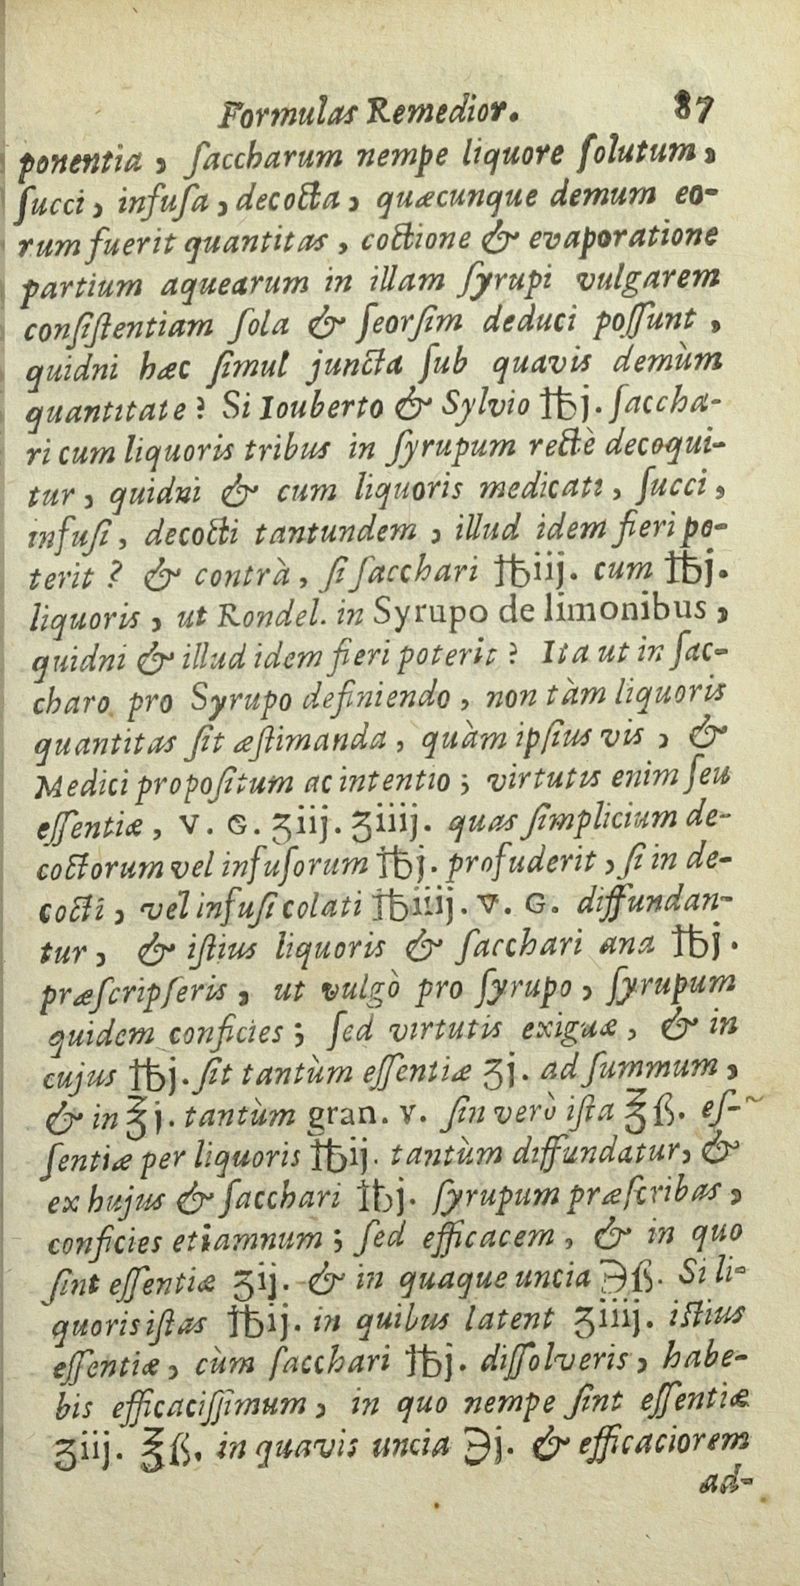 Formulas Remedior. 87
ponentia, ſaccharum nempe liquore ſolutum,
ſucci, infuſa, decocta, quæcunque demum eo-
rum fuerit quantitas, coctione & evaporatione
partium aquearum in illam ſyrupi vulgarem
conſiſtentiam ſola & ſeorſim deduci poſſunt,
quidni hæc ſimul juncta ſub quavis demùm
quantitate? Si Iouberto & Sylvio ℔j. ſaccha-
ri cum liquoris tribus in ſyrupum rectè decoqui-
tur, quidni & cum liquoris medicati, ſucci,
infuſi, decocti tantundem, illud idem fieri po-
terit? & contrà, ſi ſacchari ℔iij. cum ℔j.
liquoris, ut Rondel. in Syrupo de limonibus,
quidni & illud idem fieri poterit? Ita ut in ſac-
charo pro Syrupo definiendo, non tàm liquoris
quantitas ſit æſtimanda, quàm ipſius vis, &
Medici propoſitum ac intentio; virtutis enim ſeu
eſſentiæ, V. G. ʒiij. ʒiiij. quas ſimplicium de-
coctorum vel infuſorum ℔j. profuderit, ſi in de-
cocti, vel infuſi colati ℔iiij. V. G. diffundan-
tur, & iſtius liquoris & ſacchari ana ℔j.
præſcripſeris, ut vulgò pro ſyrupo, ſyrupum
quidem conficies; ſed virtutis exiguæ, & in
cujus ℔j. ſit tantùm eſſentiæ ʒj. ad ſummum,
& in ℥j. tantùm gran. v. ſin verò iſta ℥ß. eſ-
ſentiæ per liquoris ℔ij. tantùm diffundatur, &
ex hujus & ſacchari ℔j. ſyrupum præſcribas,
conficies etiamnum; ſed efficacem, & in quo
ſint eſſentiæ ʒij. & in quaque uncia ℈ß. Si li-
quoris iſtas ℔ij. in quibus latent ʒiiij. iſtius
eſſentiæ, cùm ſacchari ℔j. diſſolveris, habe-
bis efficaciſſimum, in quo nempe ſint eſſentiæ
ʒiij. ℥ß. in quavis uncia ℈j. & efficaciorem
ad-